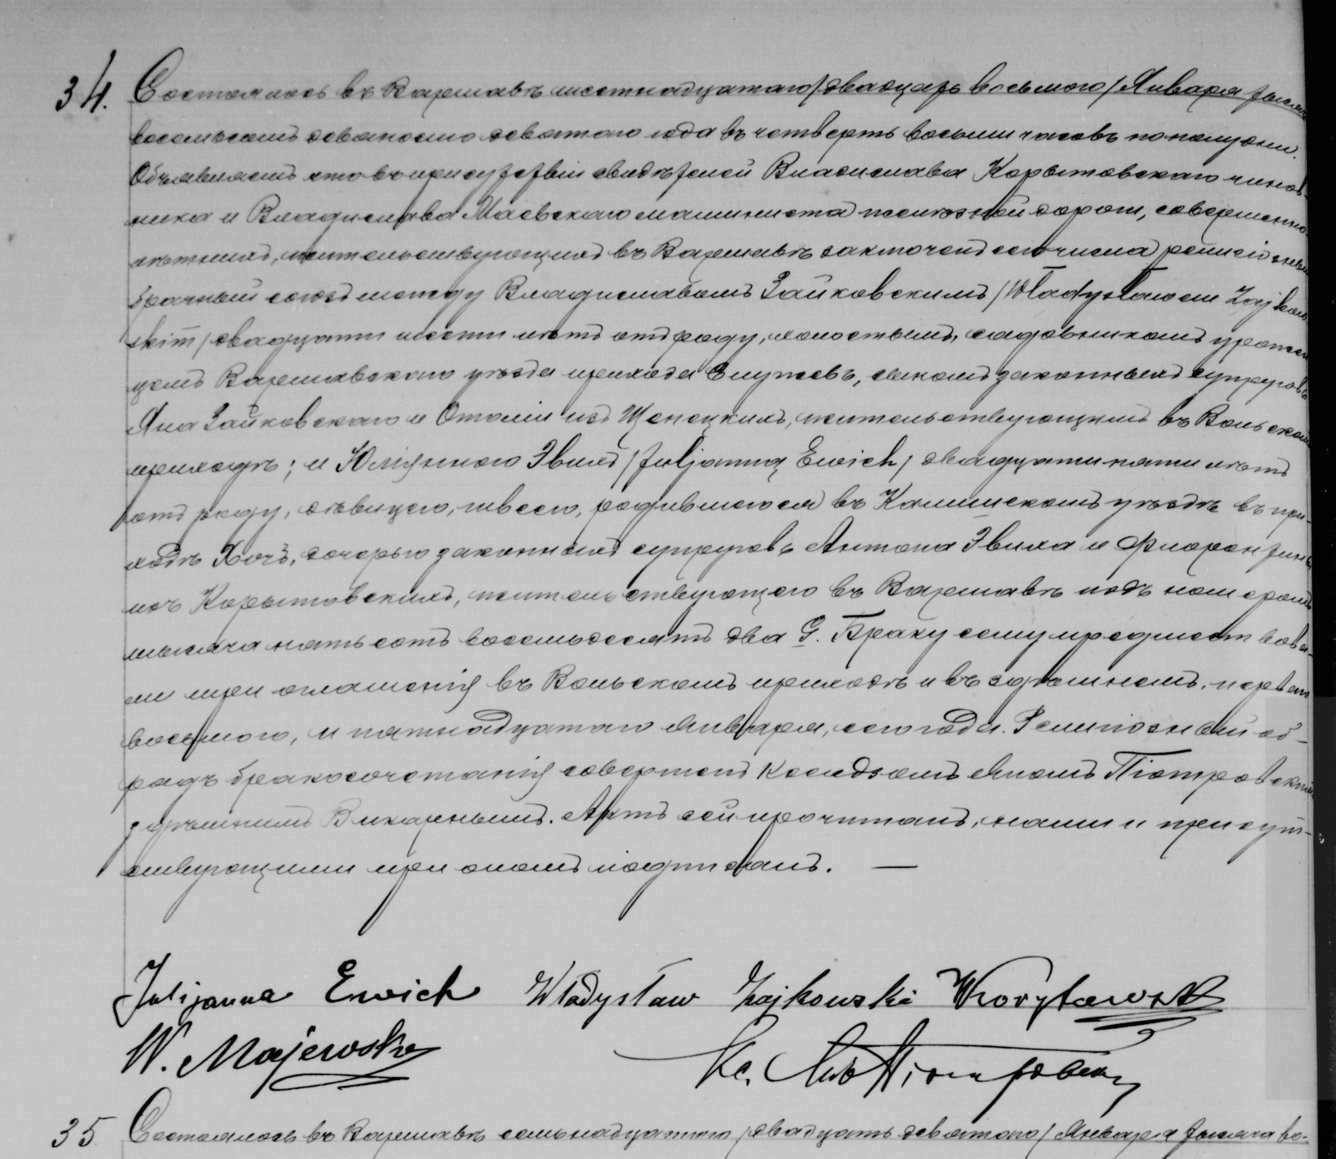 34. Состоялось въ Варшавѣ шестнадцатаго /двадцать восьмого/ Января тысяча
восемьсотъ девяносто девятаго года въ четверть восьми часовъ по полудни.
Объявляемъ что въ присутствіи свидѣтелей Владислава Корытовскаго чинов-
ника и Владислава Маевскаго машиниста желѣзной дороги, совершенно-
лѣтнихъ, жительствующихъ въ Варшавѣ заключенъ сего числа религіозный
брачный союзъ между Владиславомъ Зайковскимъ /Władysławem Zajkow-
skim/ двадцати шести лѣтъ отъ роду, холостымъ, садовникомъ урожен-
цемъ Варшавскаго уѣзда прихода Служевъ, сыномъ законныхъ супруговъ
Яна Зайковскаго и Отоліи изъ жительствующимъ въ Вольскомъ
приходѣ; и Юліянною Эвихъ /Juljanną Ewich/ двадцати пяти лѣтъ
отъ роду, дѣвицею, швеею, родившеюся въ Калишскомъ уѣздѣ въ при-
ходѣ Хочъ, дочерью законныхъ супруговъ Антона Эвиха и Флорентины
изъ Корытовскихъ, жительствующею въ Варшавѣ подъ номеромъ
тысяча пятьсотъ восемьдесятъ два G. Браку сему предшествова-
ли три оглашенія въ Вольскомъ приходѣ и въ здѣшнемъ, перваго
восьмого, и пятнадцатаго Января, сего года. Религіозный об-
рядъ бракосочетанія совершенъ Ксендзомъ Яномъ Піотровскимъ
здѣшнимъ Викарнымъ. Актъ сей прочитанъ, нами и присут-
ствующими при ономъ подписанъ. —
Julijanna Ewich Władysław Zajkowski WKorytowski
W. Majewski Кс. Янъ Піотровскій
35 Состоялось въ Варшавѣ семьнадцатаго /двадцать девятого/ Января тысяча во-